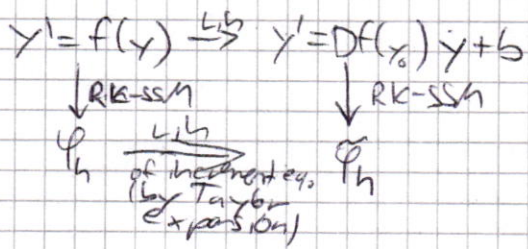 y' = f(y) Lin→ y' = Df(y₀) y + b
↓ RK-SSM ↓ RK-SSM
φₕ Lin→ φ̃ₕ
of increment eq.
(by Taylor
expansion)